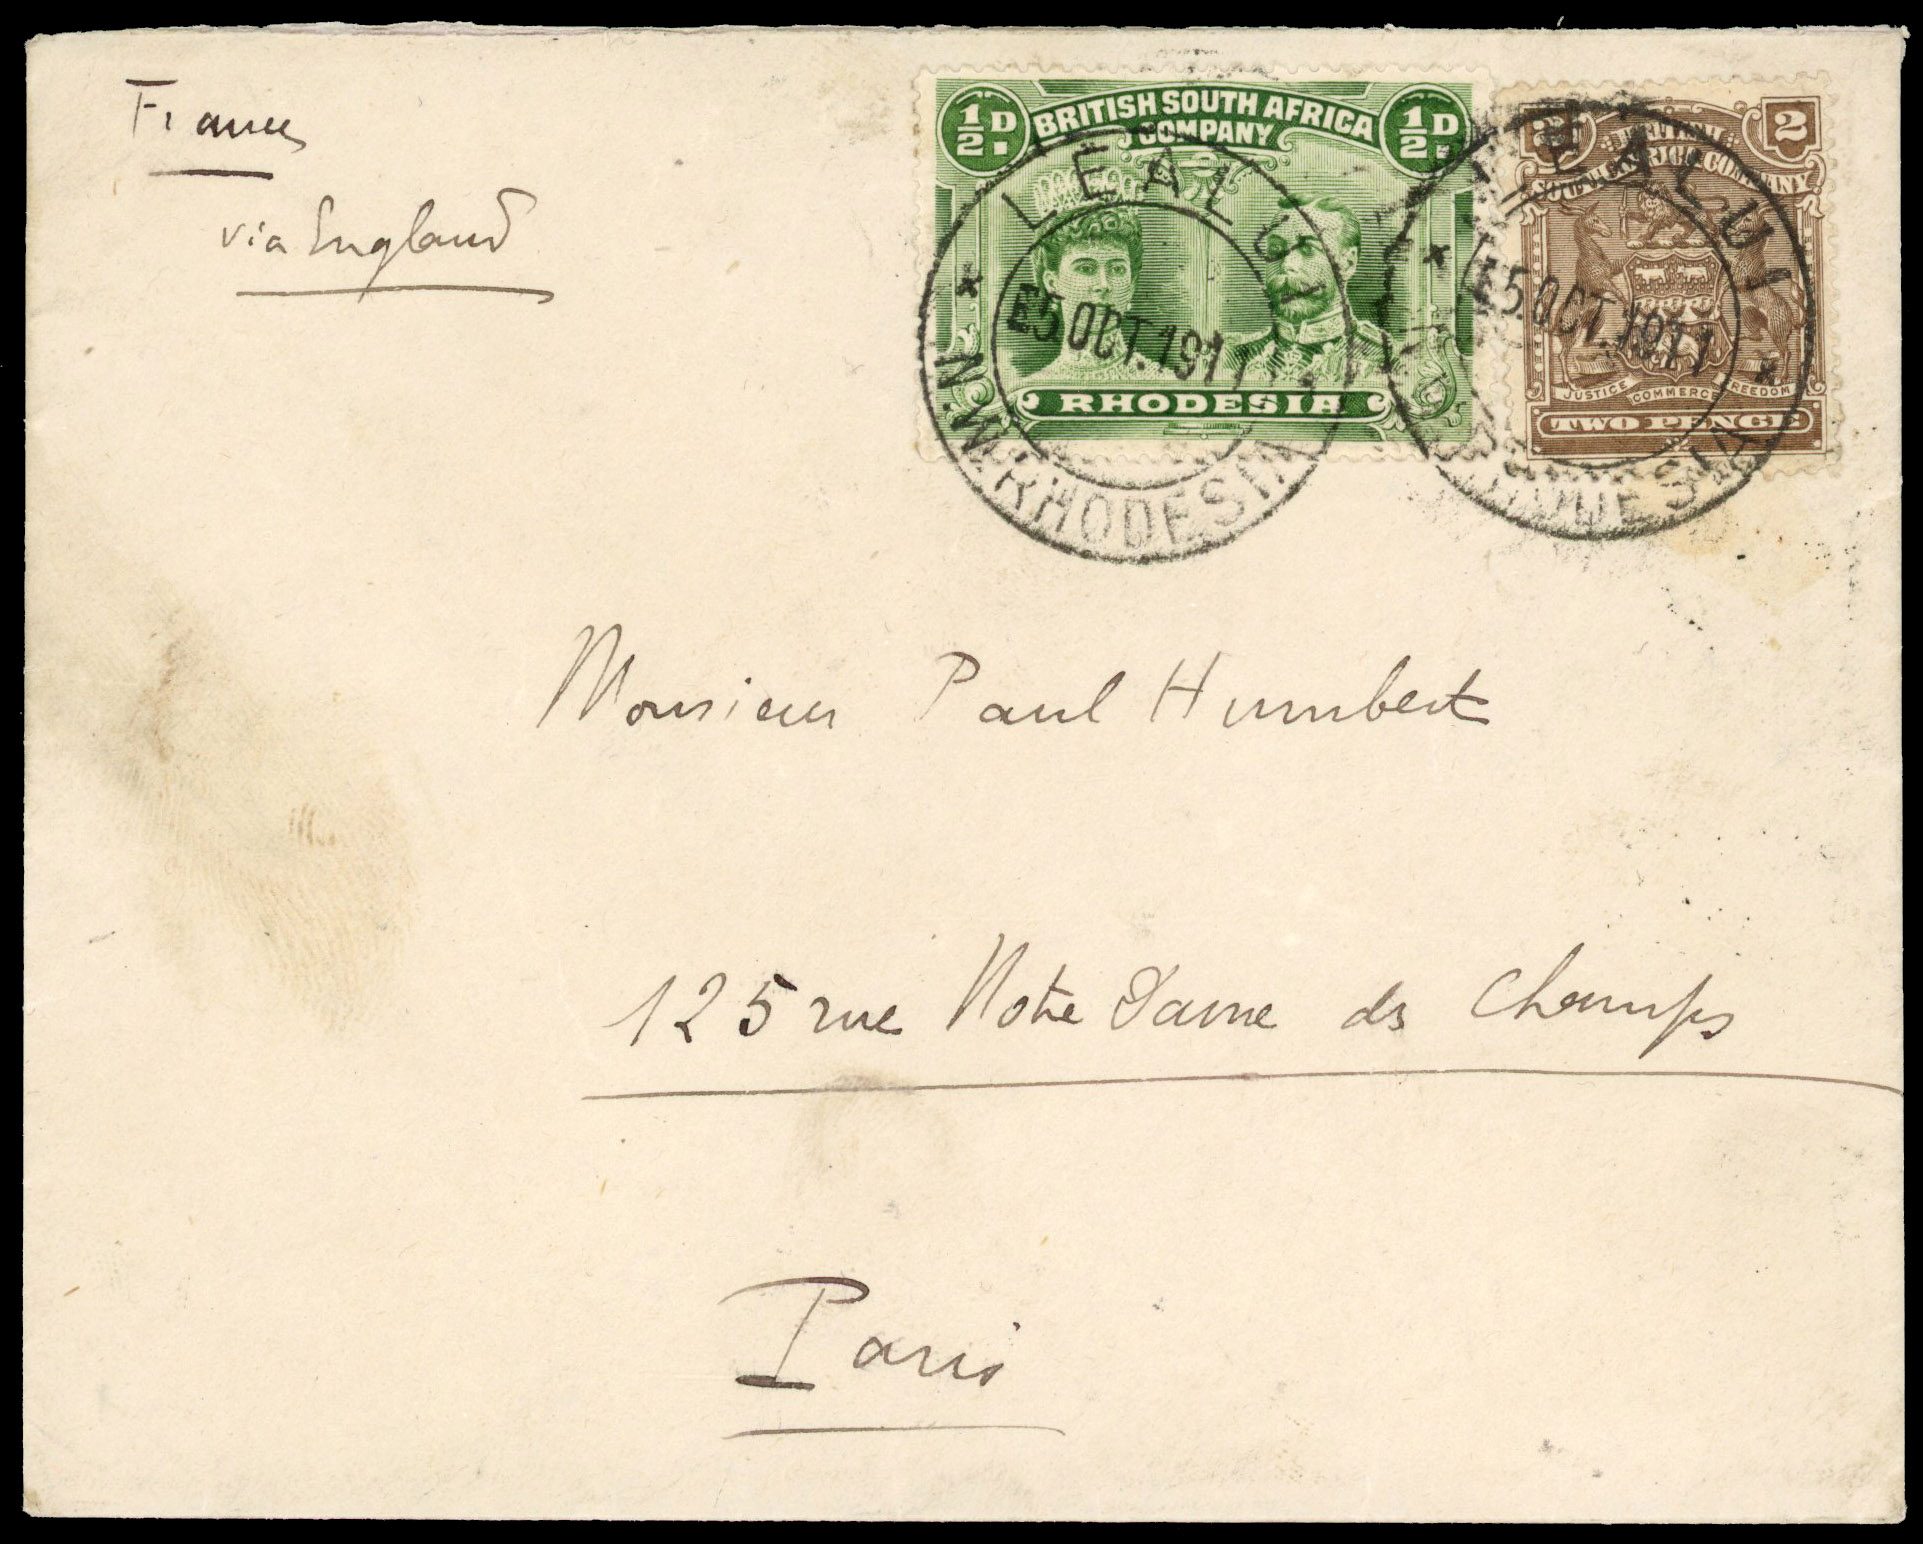 France
via England
½D. BRITISH SOUTH AFRICA COMPANY ½D.
RHODESIA
2 BRITISH 2
SOUTH AFRICA COMPANY
JUSTICE COMMERCE FREEDOM
TWO PENCE
LEALUI
E5 OCT.1911
N.W. RHODESIA
LEALUI
E5 OCT.1911
RHODESIA
Monsieur Paul Humbert
125 rue Notre Dame ds Champs
Paris